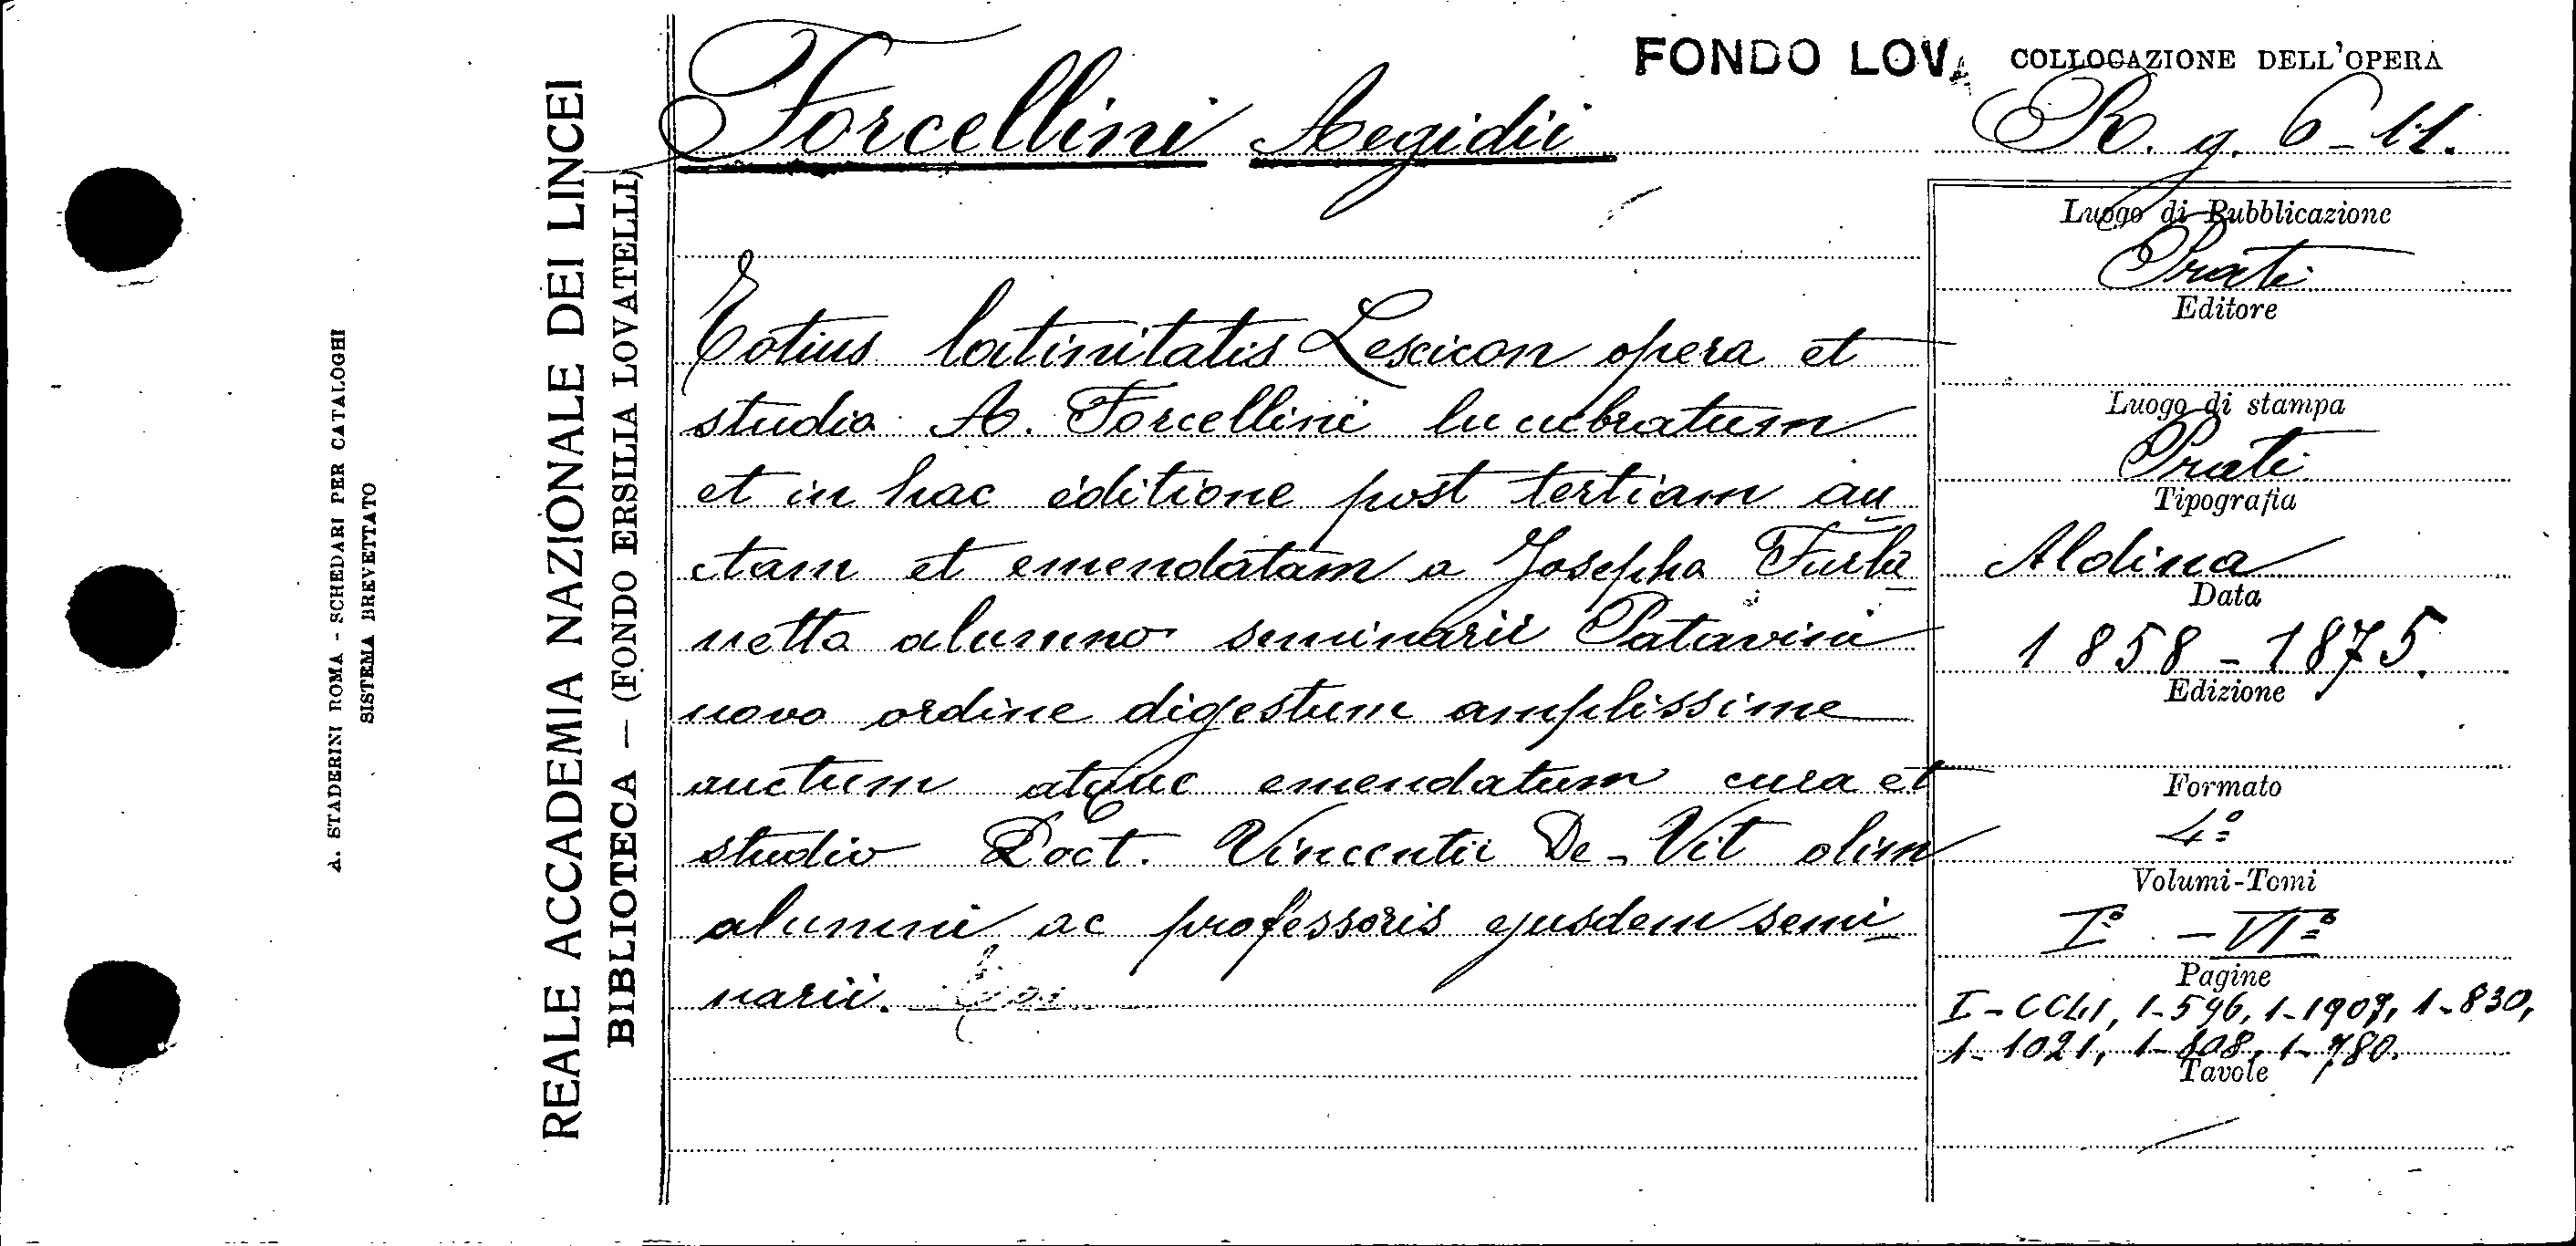 FONDO LOVA
COLLOCAZIONE DELL'OPERA
Forcellini Aegidii
R. g. 6-11.
Totius latinitatis Lexicon opera et
studio A. Forcellini lucubratum
et in hac editione post tertiam au
ctam et emendatam a Josepho Furla
netto alumno seminarii Patavini
novo ordine digestum amplissime
auctum atque emendatum cura et
studio Doct. Vincentii De-Vit olim
alumni ac professoris ejusdem semi
narii.
Luogo di Pubblicazione
Prati
Editore
Luogo di stampa
Prati
Tipografia
Aldina
Data
1858-1875.
Edizione
Formato
4º
Volumi-Tomi
Iº - VIº
Pagine
I-CCLI, 1-596, 1-1907, 1-830,
1-1021, 1-808, 1-780.
Tavole
REALE ACCADEMIA NAZIONALE DEI LINCEI
BIBLIOTECA — (FONDO ERSILIA LOVATELLI)
A. STADERINI ROMA - SCHEDARI PER CATALOGHI
SISTEMA BREVETTATO